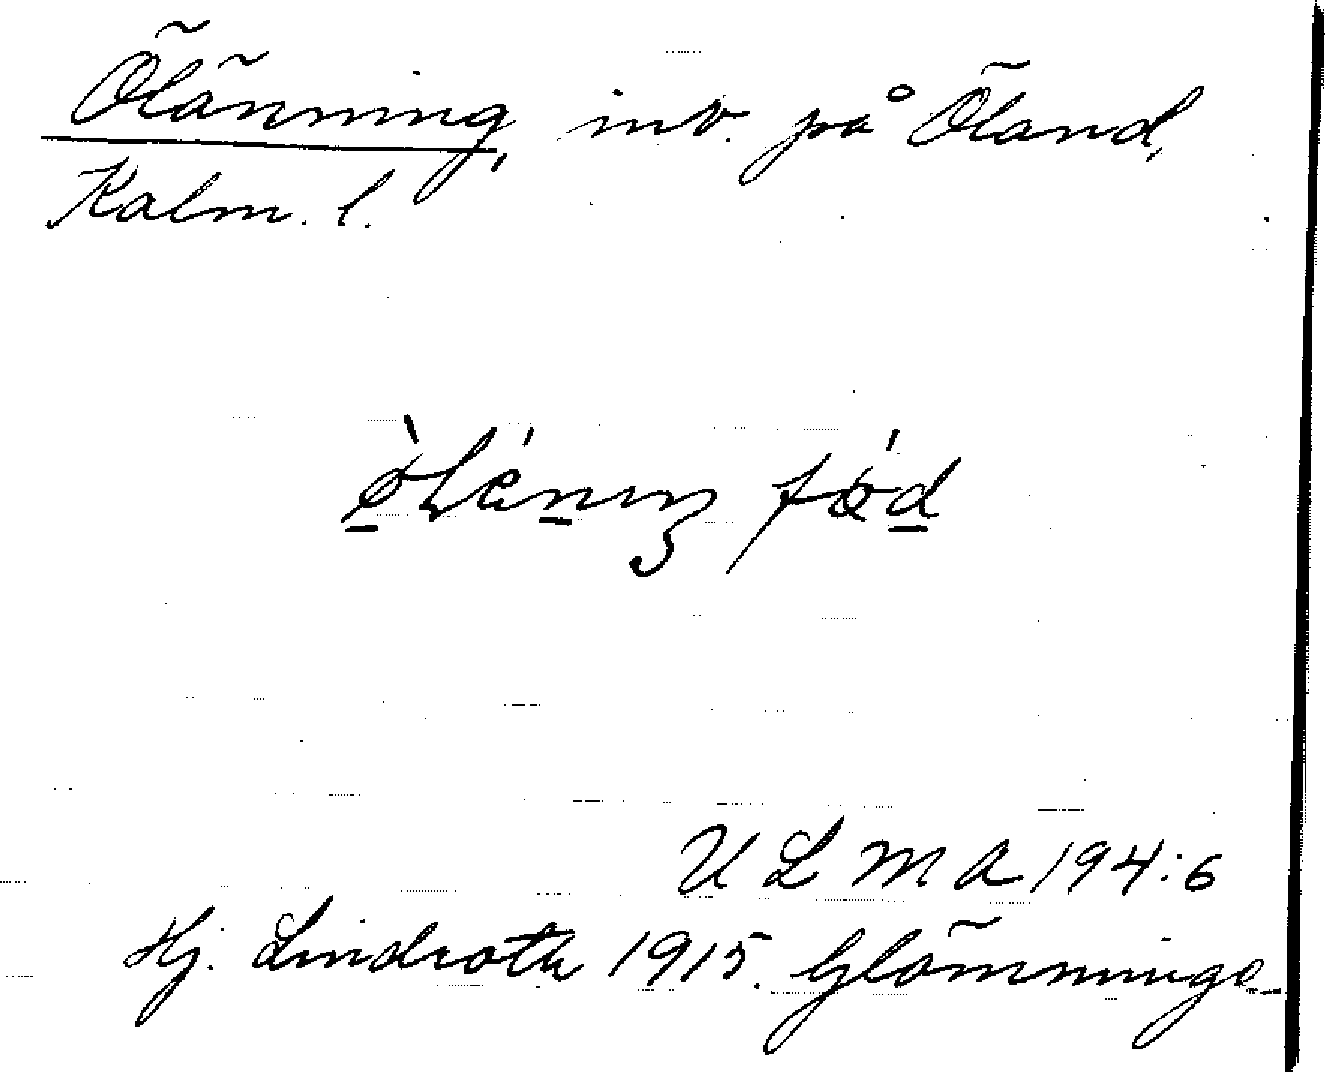 Öländning, inv. på Öland,
Kalm. l.
ULMA 194:6
Hj. Lindroth 1915. Glömminge